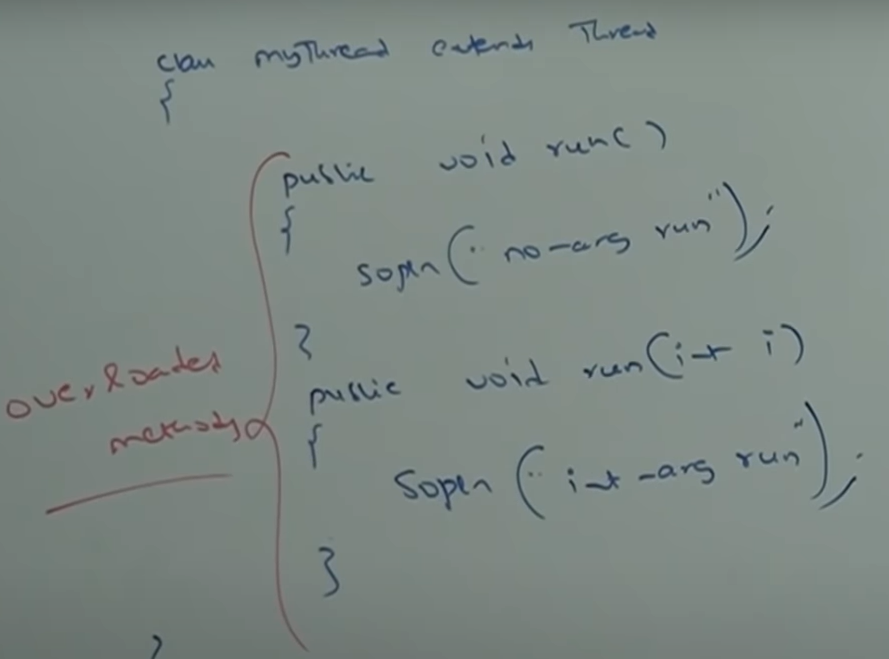 class myThread extends Thread
{
public void run()
{
sopln("no-arg run");
}
public void run(int i)
{
sopln("int-arg run");
}
}
overloaded
methods